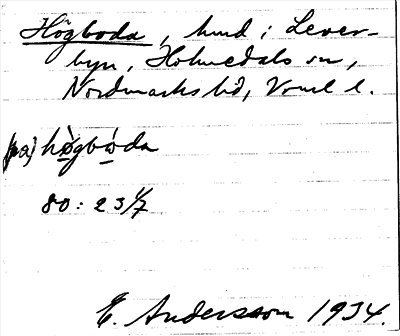 Högboda, hmd i Lever-
byn, Holmedals sn,
Nordmarks hd, Vrml l.
(på) högboda
80: 23/7
E. Andersson 1934.